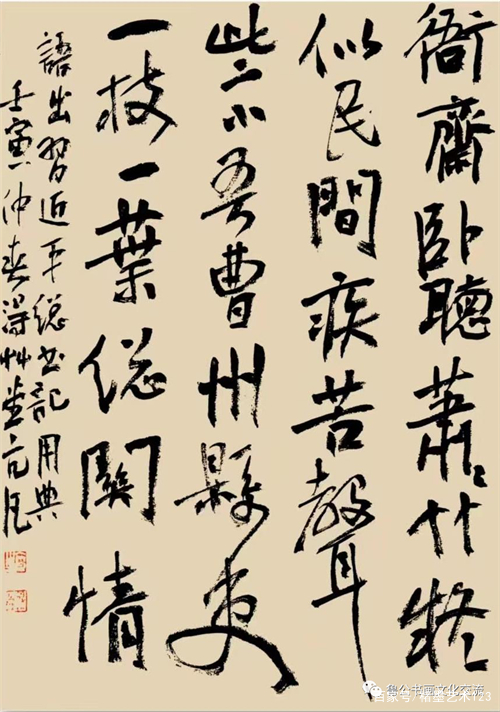 衙齋卧聽蕭〻竹疑
似民間疾苦聲
些小吾曹州縣吏
一枝一葉總關情
語出習近平總書記用典
壬寅仲春
鲁公书画文化交流
百家号/楮墨艺术123